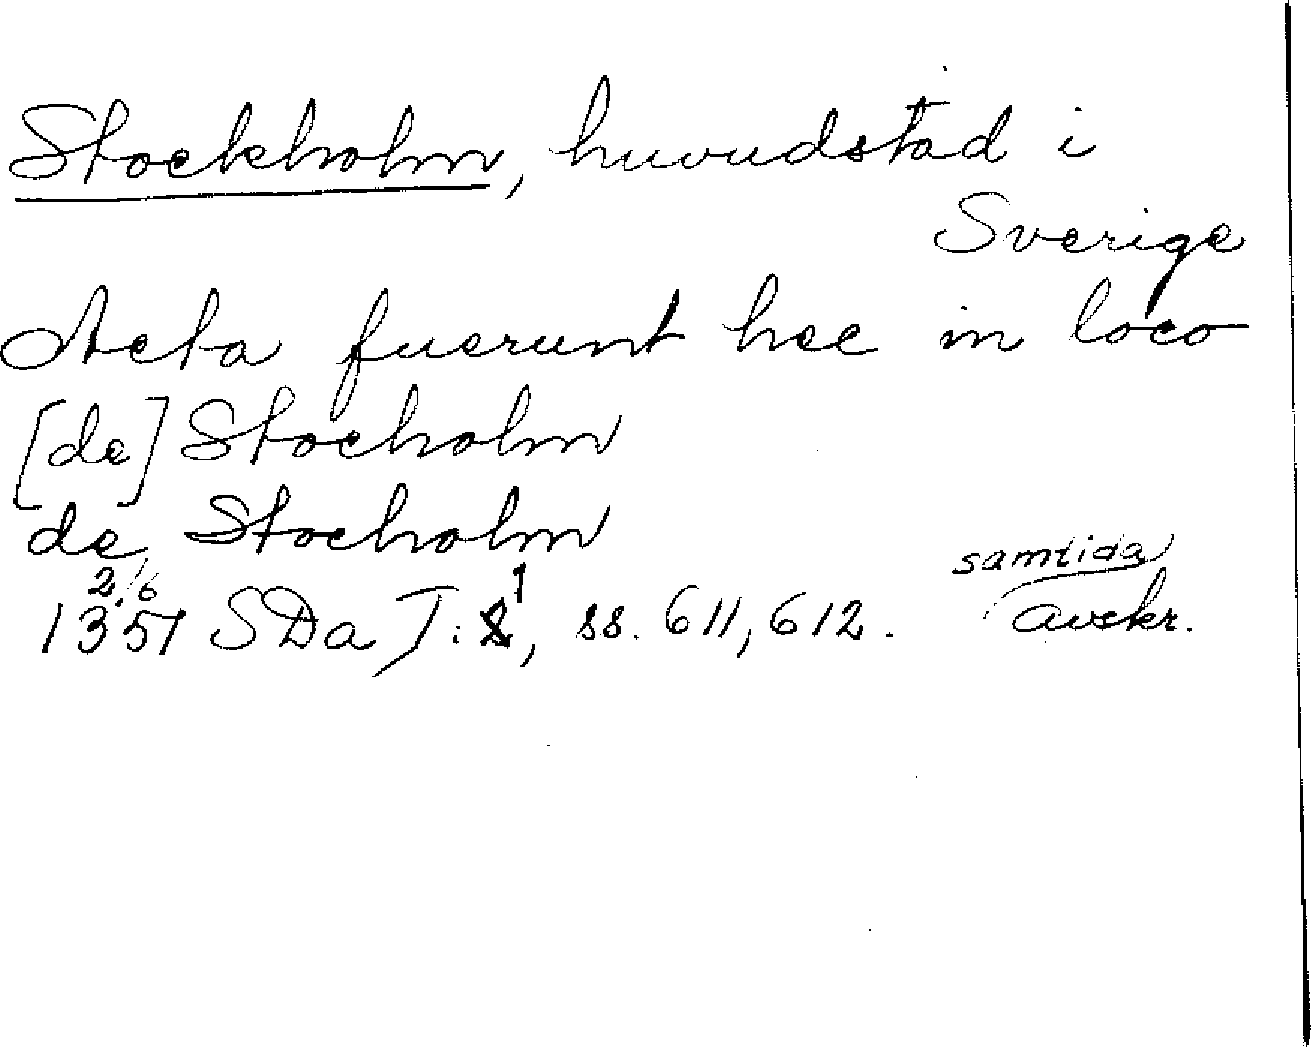 Stockholm, huvudstad i
Sverige
Acta fuerunt hec in loco
[de] Stocholm
de Stocholm
2/6 samtida
1351 SDa I:1, ss. 611, 612. avskr.